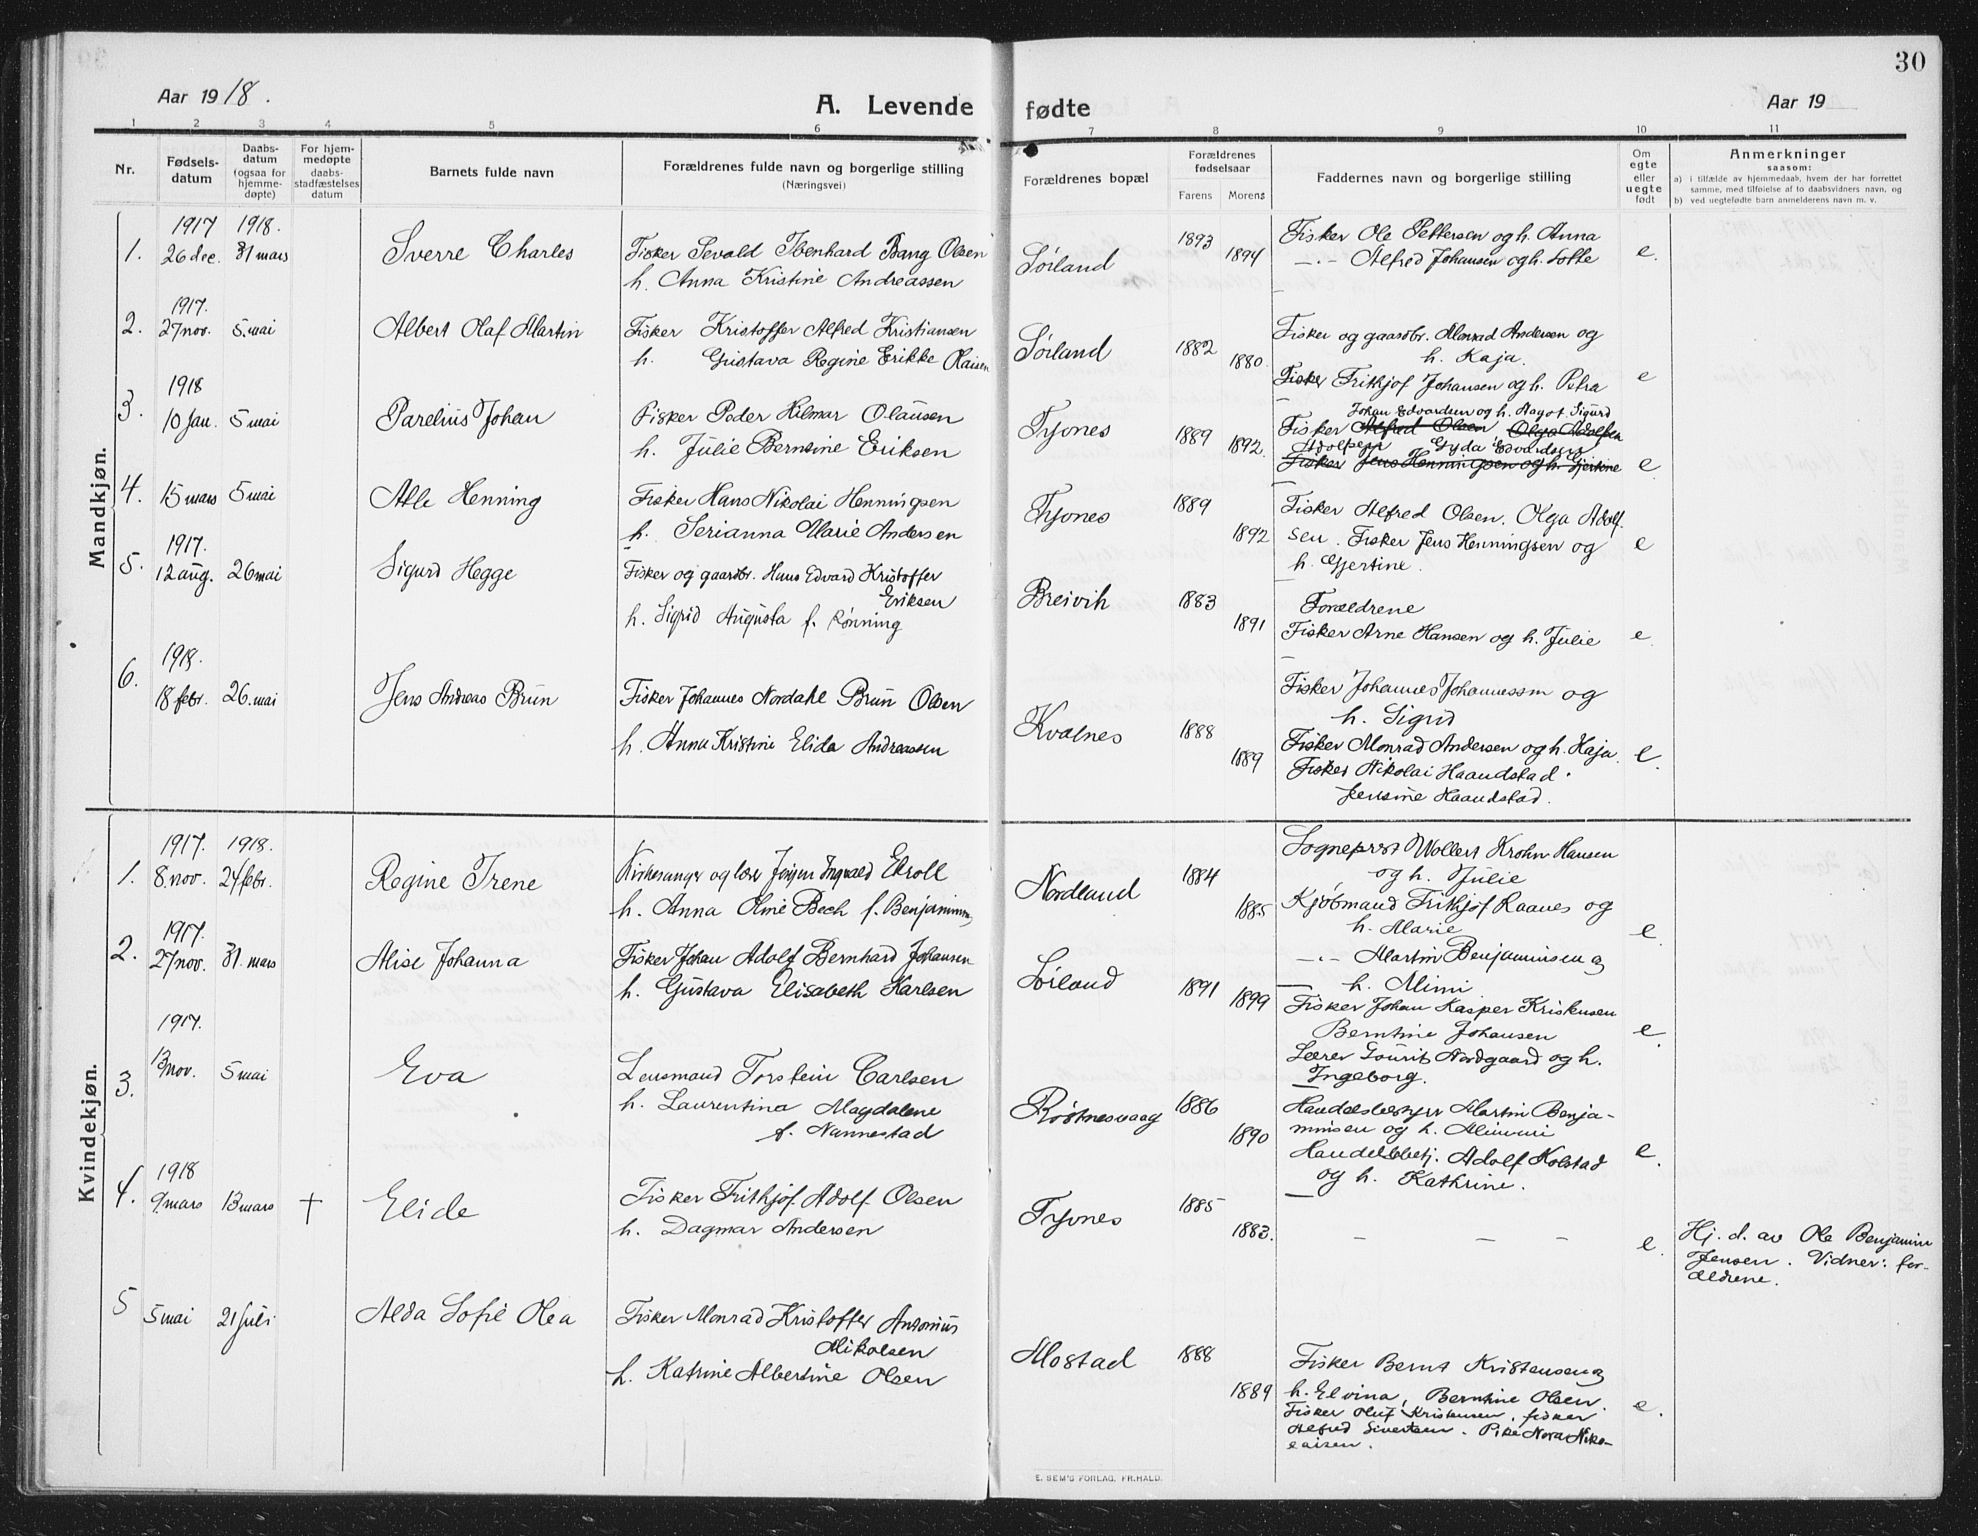 30
Aar 1918.
A. Levende fødte
Aar 19
1 2 3 4 5 6 7 8 9 10 11
Nr.
Fødsels-
datum
Daabs-
datum
(ogsaa for
hjemme-
døpte)
For hjem-
medøpte
daabs-
stadfæstelses
datum
Barnets fulde navn
Forældrenes fulde navn og borgerlige stilling
(Næringsvei)
Forældrenes bopæl
Forældrenes
fødselsaar
Farens Morens
Faddernes navn og borgerlige stilling
Om
egte
eller
uegte
født
Anmerkninger
saasom:
a) i tilfælde av hjemmedaab, hvem der har forrettet
samme, med tilføielse af to daabsvidners navn, og
b) ved uegtefødte barn anmelderens navn m. v.
Mandkjøn.
1917 1918.
1. 26 dec. 31 mars
Sverre Charles
Fisker Sevald Ibenhard Bang Olsen
h. Anna Kristine Andreassen
Sørland
1893
1894
Fisker Ole Pettersen og h. Anna
-"- Alfred Johansen og h. Lotte
e.
1917.
2. 27 nov. 5. mai
Albert Olaf Martin
Fisker Kristoffer Alfred Kristiansen
h. Gustava Regine Erikke Olaisen
Sørland
1882
1880
Fisker og gaardbr. Monrad Andersen og
h. Kaja.
Fisker Frithjof Johansen og h. Petra
e
1918
3. 10 jan. 5 mai
Parelius Johan
Fisker Peder Hilmar Olausen
h. Julie Berntine Eriksen
Tyvnes
1889
1892.
Johan Edvardsen og h. Hagot. Sigurd
Fisker Alfred Olsen Olga Adolfsen
Adolfsen Gyda Edvardsen
Fisker Jens Henningsen og h. Gjertine
e
4. 15 mars 5 mai
Atle Henning
Fisker Hans Nikolai Henningsen
h. Serianna Marie Andersen
Tyvnes
1889
1892
Fisker Alfred Olsen. Olga Adolf-
sen. Fisker Jens Henningsen og
h. Gjertine.
e
1917.
5. 12 aug. 26 mai
Sigurd Hegge
Fisker og gaardbr. Hans Edvard Kristoffer
Eriksen
h. Sigrid Augusta f. Rønning
Breivik
1883
1891
Forældrene
Fisker Arne Hansen og h. Julie
e
1918.
6. 18 febr. 26. mai
Jens Andreas Brun
Fisker Johannes Nordahl Brun Olsen
h. Anna Kristine Elida Andreassen
Kvalnes
1888
1889
Fisker Johannes Johannessen og
h. Sigrid
Fisker Monrad Andersen og h. Kaja.
Fisker Nikolai Haandstad.
Jensine Haandstad.
e.
Kvindekjøn.
1917. 1918.
1. 8. nov. 24 febr.
Regine Irene
Kirkesanger og lærer Jørgen Ingvald Ekroll
h. Anna Oline Bech f. Benjaminsen
Nordland
1884
1885
Sogneprest Wollert Krohn Hansen
og h. Julie
Kjøbmand Frithjof Raanes og
h. Marie
-"- Martin Benjaminsen og
h. Mimi
e.
1917.
2. 27 nov. 31. mars
Alise Johanna
Fisker Johan Adolf Bernhard Johansen
h. Gustava Elisabeth Karlsen
Sørland
1891
1899
Fisker Johan Kasper Kristensen
Berntine Johansen
Lærer Gourit Nordgaard og h.
Ingeborg.
e.
1917.
3. 13 nov. 5 mai
Eva
Lensmand Torstein Carlsen
h. Laurentina Magdalene
f. Nannestad
Røstnesvaag
1886
1890
Handelsbestyrer Martin Benja-
minsen og h. Mimmi
Handelsbetj. Adolf Kolstad
og h. Kathrine.
e.
1918
4. 9. mars 13 mars †
Elide
Fisker Frithjof Adolf Olsen
h. Dagmar Andersen
Tyvnes
1885
1883.
- - - -
e.
Hj. d. av Ole Benjamin
Jensen. Vidner: for-
ældrene.
5 5 mai 21 juli
Alda Sofie Olea
Fisker Monrad Kristoffer Antonius
Mikalsen
h. Katrine Albertine Olsen
Mostad
1888
1889
Fisker Bernt Kristensen og
h. Elvina, Berntine Olsen.
Fisker Oluf Kristensen, fisker
Alfred Sivertsen. Pike Nora Niko-
laisen.
e.
E. SEM'S FORLAG, FR.HALD.